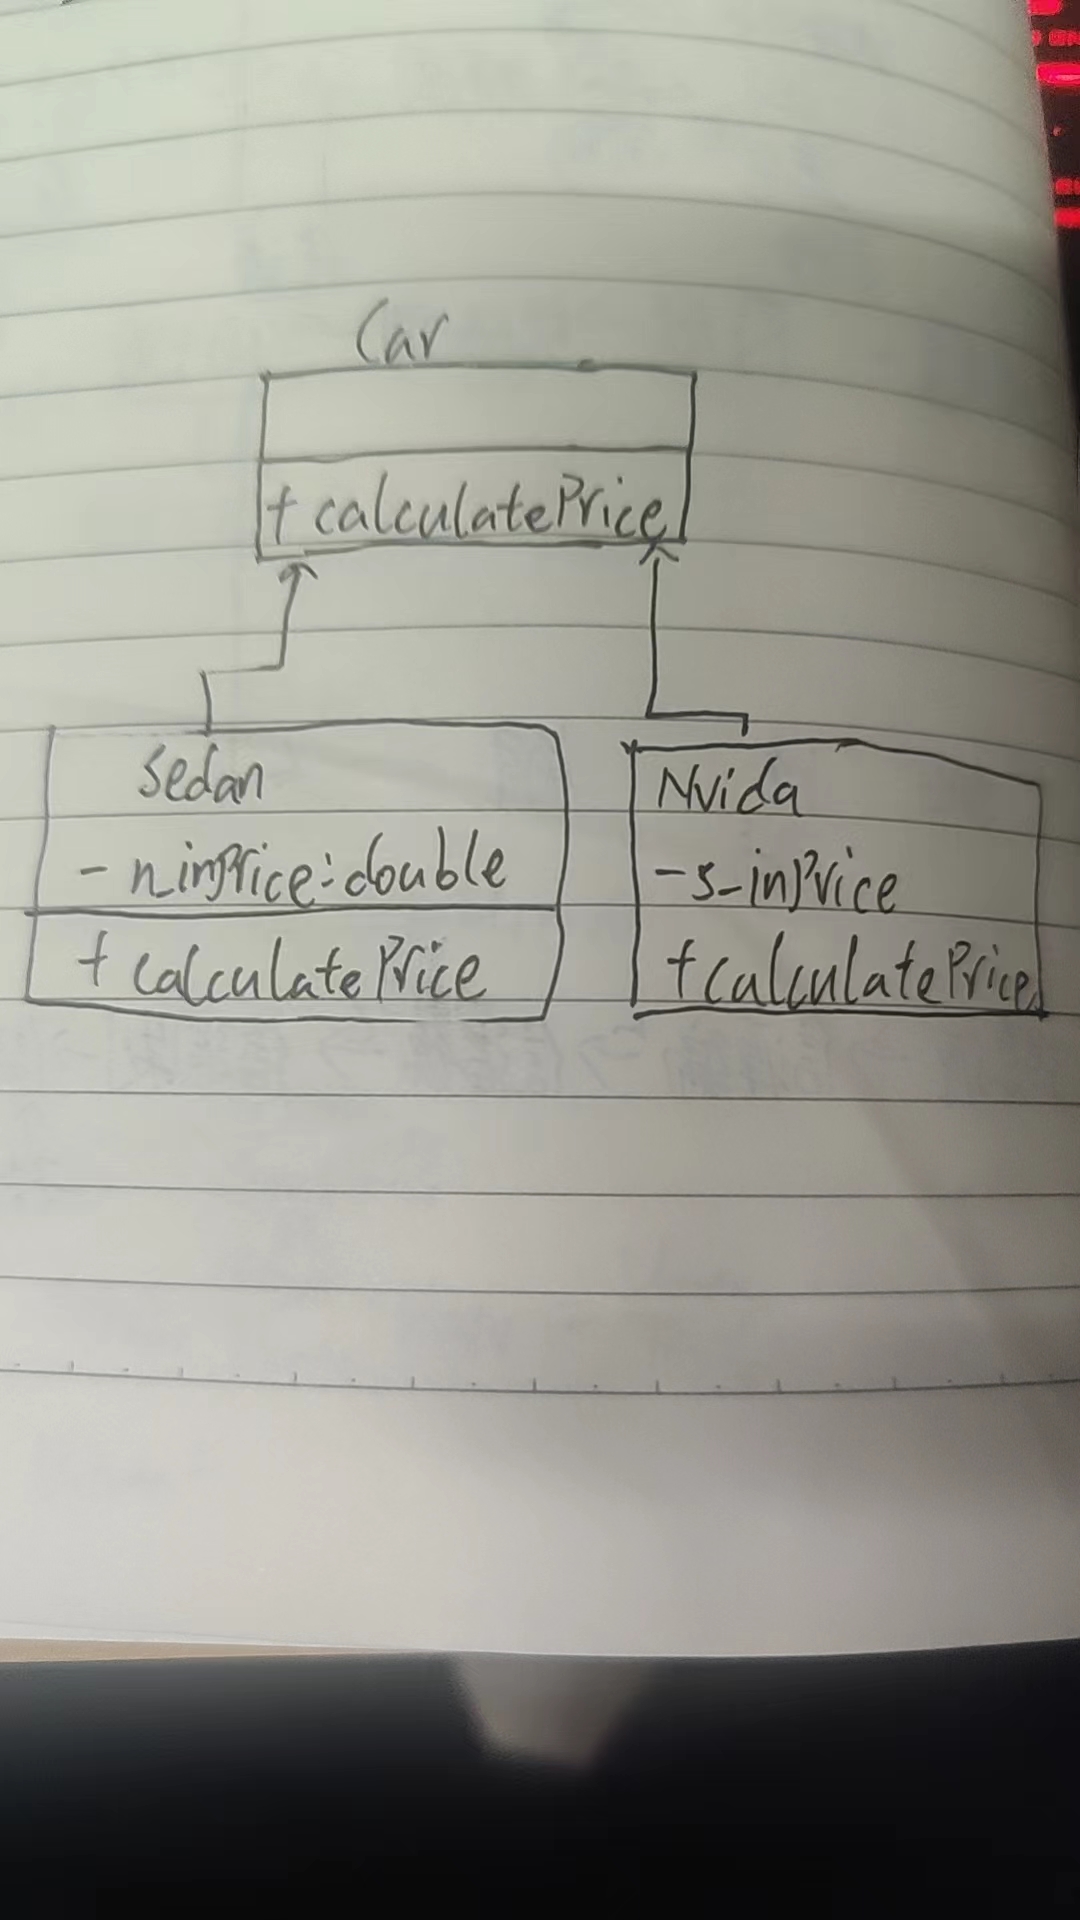 Car
+ calculatePrice
Sedan
- n_inPrice:double
+ calculatePrice
Nvida
-s_inPrice
+calculatePrice